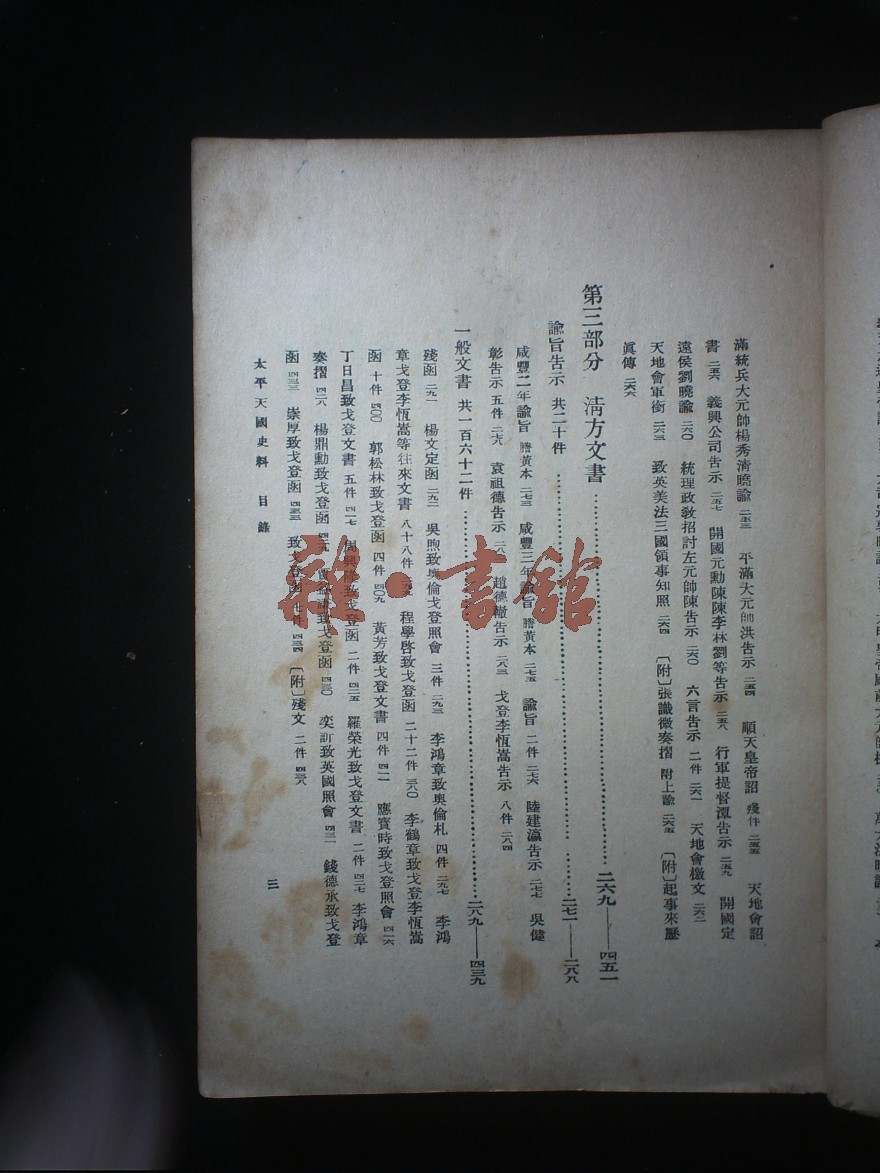 滿統兵大元帥楊秀清曉諭 二五三 平滿大元帥洪告示 二五四 順天皇帝詔 殘件 二五五 天地會詔
書 二五六 義興公司告示 二五七 開國元勳陳陳李林劉等告示 二五八 行軍提督潭告示 二五九 開國定
遠侯劉曉諭 二六〇 統理政教招討左元帥陳告示 二六〇 六言告示 二件 二六一 天地會檄文 二六二
天地會軍銜 二六三 致英美法三國領事知照 二六四 〔附〕張議微奏摺 附上諭 二六五 〔附〕起事來歷
眞傳 二六六
第三部分 清方文書…………二六九——四五一
諭旨告示 共二十件…………二七一——二八八
咸豐二年諭旨 謄黃本 二七三 咸豐三年諭旨 謄黃本 二七五 諭旨 二件 二七六 陸建瀛告示 二七七 吳健
彰告示 五件 二七八 袁祖德告示 趙德轍告示 二八三 戈登李恆嵩告示 八件 二八四
一般文書 共一百六十二件…………二八九——四三九
殘函 二九一 楊文定函 二九二 吳煦致奧倫戈登照會 三件 二九三 李鴻章致奧倫札 四件 二九七 李鴻
章戈登李恆嵩等往來文書 八十八件 程學啓致戈登函 二十二件 三八〇 李鶴章致戈登李恆嵩
函 十件 四〇〇 郭松林致戈登函 四件 四〇九 黃芳致戈登文書 四件 四一一 應寶時致戈登照會 四一六
丁日昌致戈登文書 五件 四一七 致戈登函 二件 四二五 羅榮光致戈登文書 二件 四二七 李鴻章
奏摺 四二八 楊鼎勳致戈登函 四二九 致戈登函 四三〇 奕訢致英國照會 四三一 錢德承致戈登
函 四三三 崇厚致戈登函 四三三 致戈登函 七件 四三四 〔附〕殘文 二件 四三八
太平天國史料 目錄
三
雜·書館